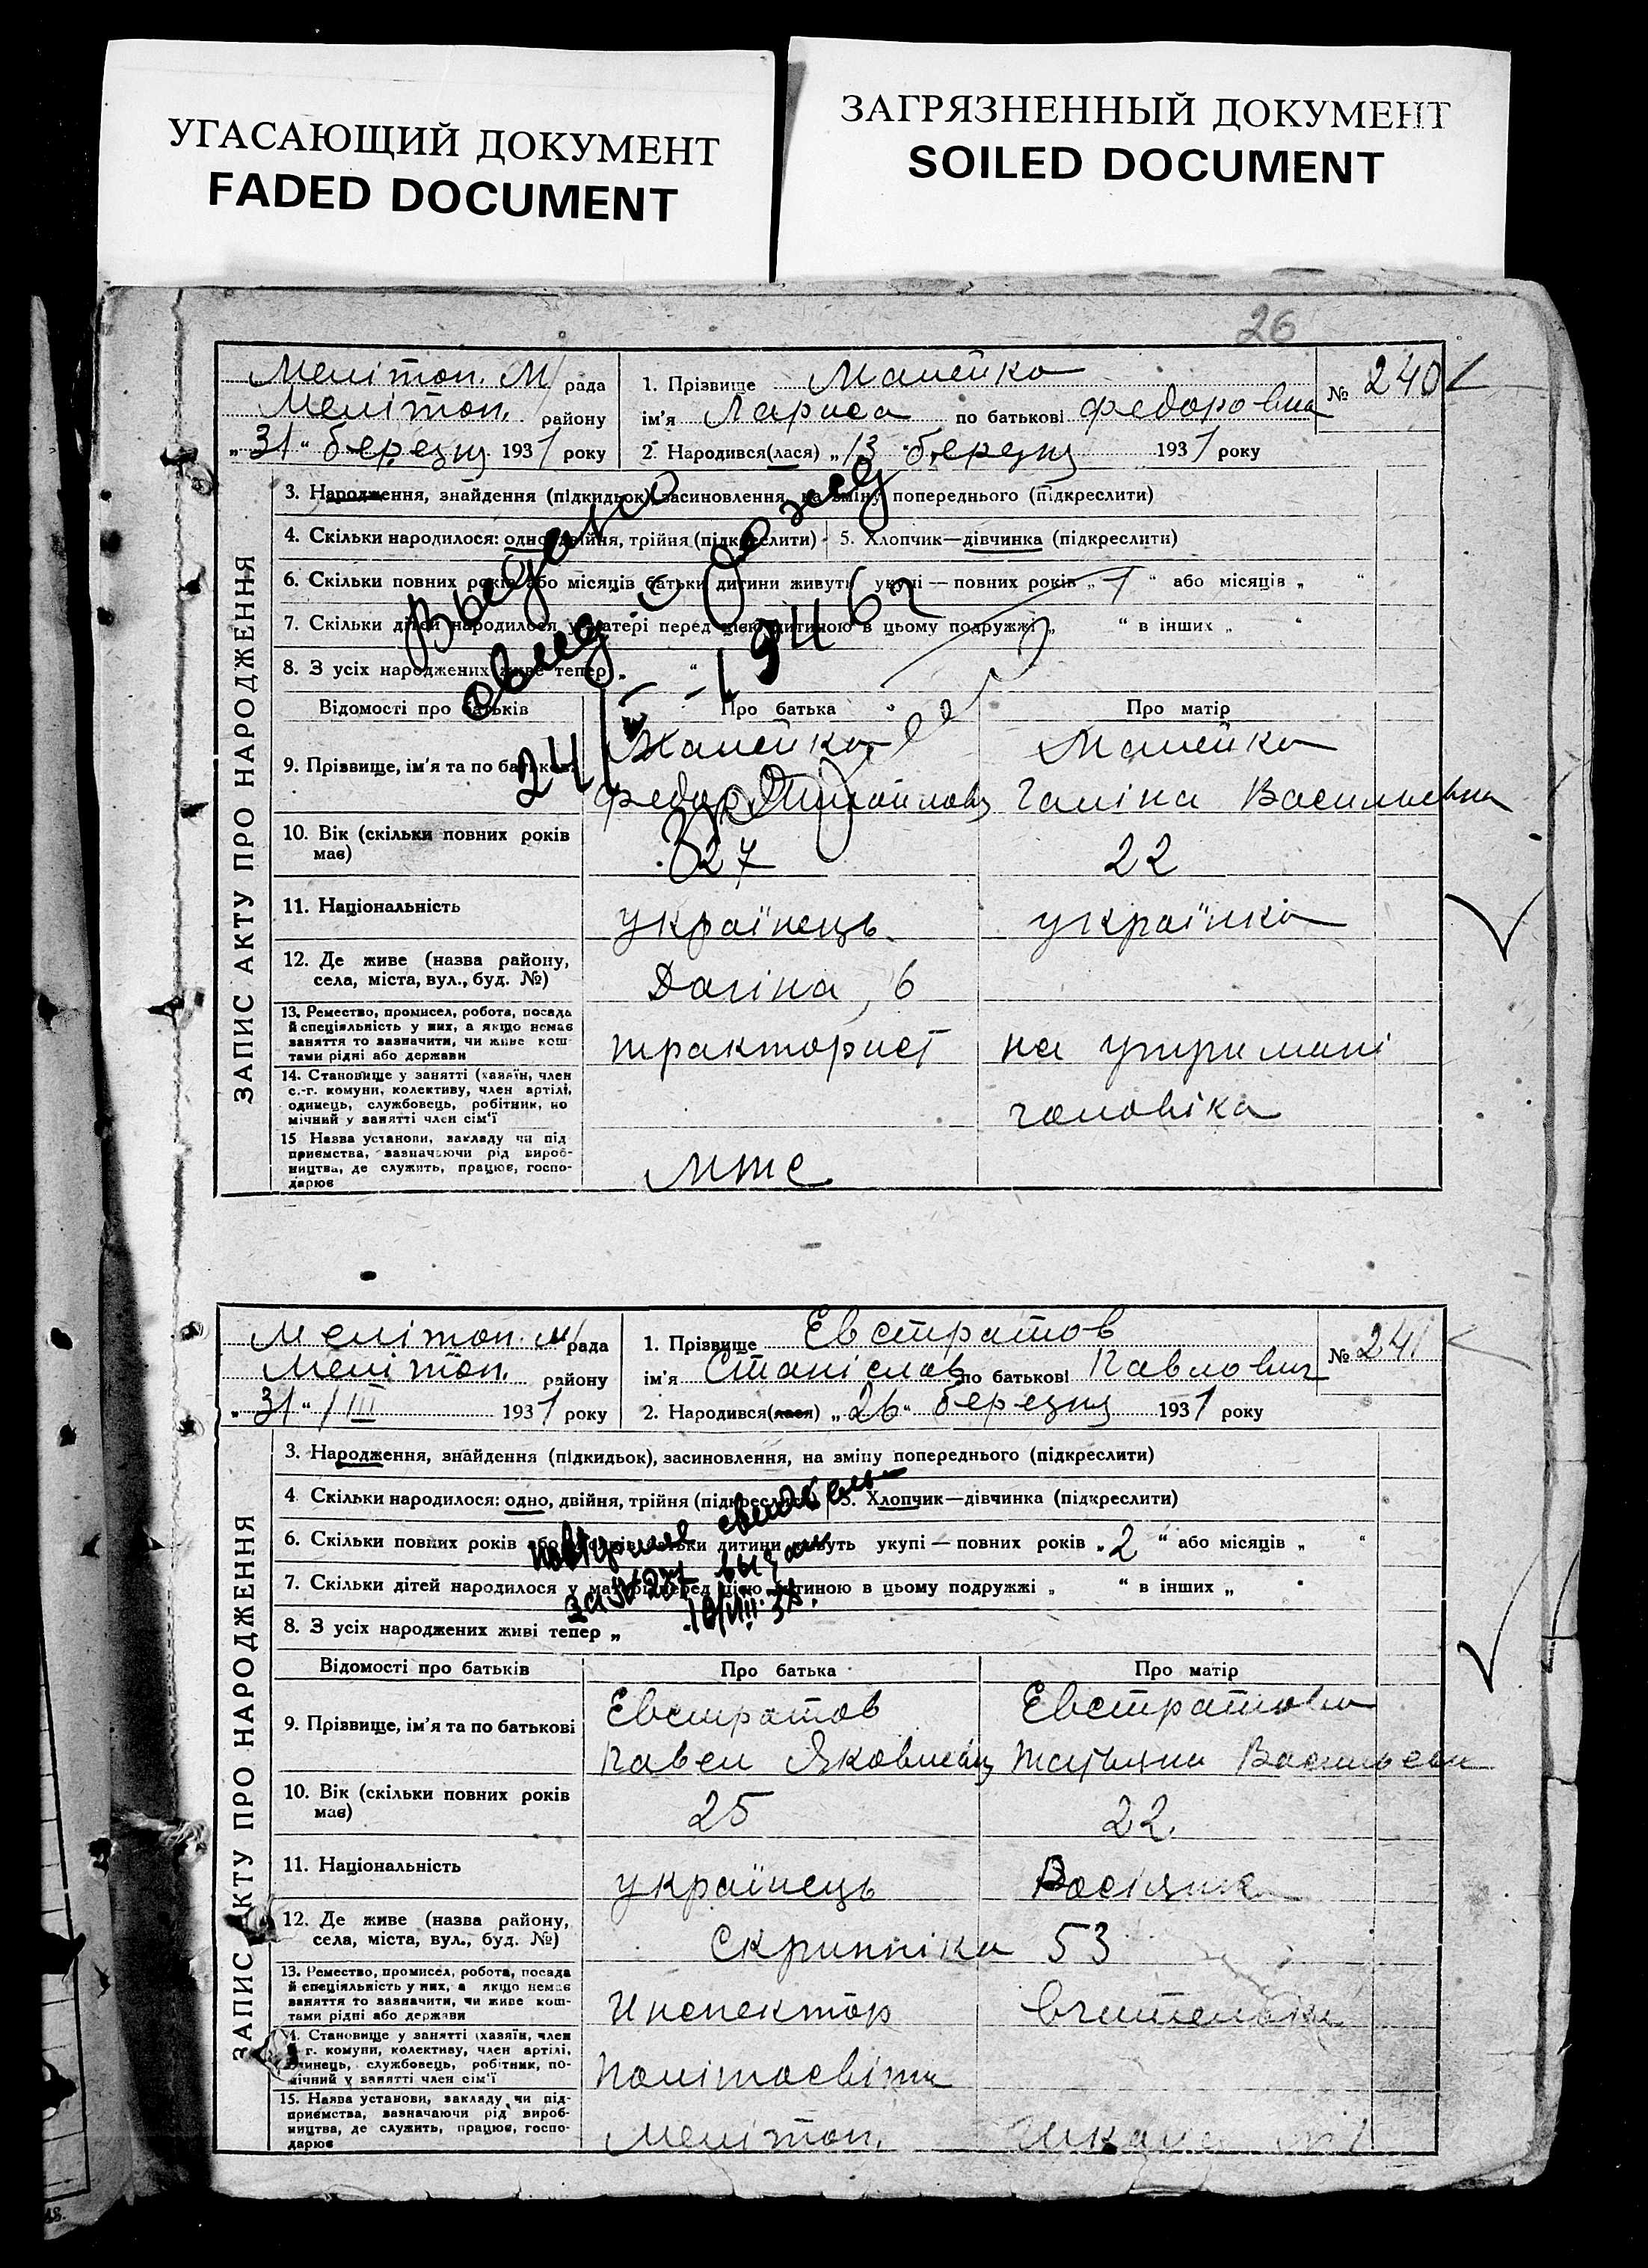 УГАСАЮЩИЙ ДОКУМЕНТ
FADED DOCUMENT
ЗАГРЯЗНЕННЫЙ ДОКУМЕНТ
SOILED DOCUMENT
26
ЗАПИС АКТУ ПРО НАРОДЖЕННЯ
Мелітоп. М/ рада
Мелітоп. району
„31“ березня 1931 року
1. Прізвище Малейко
ім'я Лариса по батькові Федоровна
2. Народився(лася) „13“ березня 1931 року
№ 240
3. Народження, знайдення (підкидьок), засиновлення, на зміну попереднього (підкреслити)
4. Скільки народилося: одно, двійня, трійня (підкреслити)
5. Хлопчик—дівчинка (підкреслити)
6. Скільки повних років або місяців батьки дитини живуть укупі — повних років „1“ або місяців „ “
7. Скільки дітей народилося у матері перед цією дитиною в цьому подружжі „ “ в інших „ “
8. З усіх народжених живе тепер „ “
Выдано
24/ 1946 г
Відомості про батьків
Про батька
Про матір
9. Прізвище, ім'я та по батькові
Малейко
Федор
Малейко
Галіна Васильевна
10. Вік (скільки повних років має)
27
22
11. Національність
українець
українка
12. Де живе (назва району, села, міста, вул., буд. №)
6
13. Ремество, промисел, робота, посада й спеціяльність у них, а якщо немає заняття то зазначити, чи живе коштами рідні або держави
тракторист
на утримані
чоловіка
14. Становище у занятті (хазяїн, член с.-г. комуни, колективу, член артілі, одинець, службовець, робітник, помічний у занятті член сім'ї
15 Назва установи, закладу чи підприємства, зазначаючи рід виробництва, де служить, працює, господарює
МТС
ЗАПИС АКТУ ПРО НАРОДЖЕННЯ
Мелітоп. М/ рада
Мелітоп. району
„31“ /III 1931 року
1. Прізвище Евстратов
ім'я Станіслав по батькові Павлович
2. Народився(лася) „26“ березня 1931 року
№ 241
3. Народження, знайдення (підкидьок), засиновлення, на зміну попереднього (підкреслити)
4 Скільки народилося: одно, двійня, трійня (підкреслити)
5. Хлопчик—дівчинка (підкреслити)
6. Скільки повних років або місяців батьки дитини живуть укупі — повних років „2“ або місяців „ “
7. Скільки дітей народилося у матері перед цією дитиною в цьому подружжі „ “ в інших „ “
8. З усіх народжених живі тепер „
выдан
Відомості про батьків
Про батька
Про матір
9. Прізвище, ім'я та по батькові
Евстратов
Павел Яковлевич
Евстратова
Татьяна Васильевн
10. Вік (скільки повних років має)
25
22
11. Національність
українець
Росіянка
12. Де живе (назва району, села, міста, вул., буд. №)
Скрипніка 53
13. Ремество, промисел, робота, посада й спеціяльність у них, а якщо немає заняття то зазначити, чи живе коштами рідні або держави
Інспектор
вчителька
14. Становище у занятті (хазяїн, член с.-г. комуни, колективу, член артілі, одинець, службовець, робітник, помічний у занятті член сім'ї
політосвіти
15. Назва установи, закладу чи підприємства, зазначаючи рід виробництва, де служить, працює, господарює
Мелітоп.